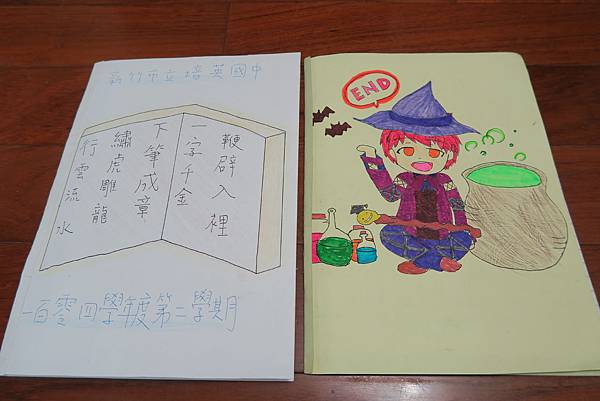 新竹市立培英國中
鞭辟入裡
一字千金
下筆成章
繡虎雕龍
行雲流水
一百零四學年度第二學期
END